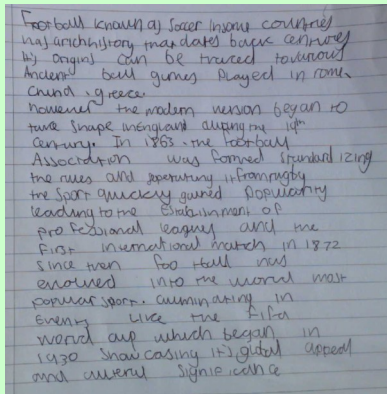 Football known as Soccer in some countries
has a rich history that dates back centuries
Its origins can be traced to various
Ancient ball games played in rome
china, greece.
however the modern version began to
take shape in england during the 19th
century. In 1863. the football
Association was formed standardizing
the rules and seperating it from rugby
the sport quickly gained popularity
leading to the Establishment of
professional leagues and the
First international match in 1872
since then football has
evolved into the world most
popular sport. culminating in
Events like the fifa
world cup which began in
1930 showcasing its global appeal
and cultural significance